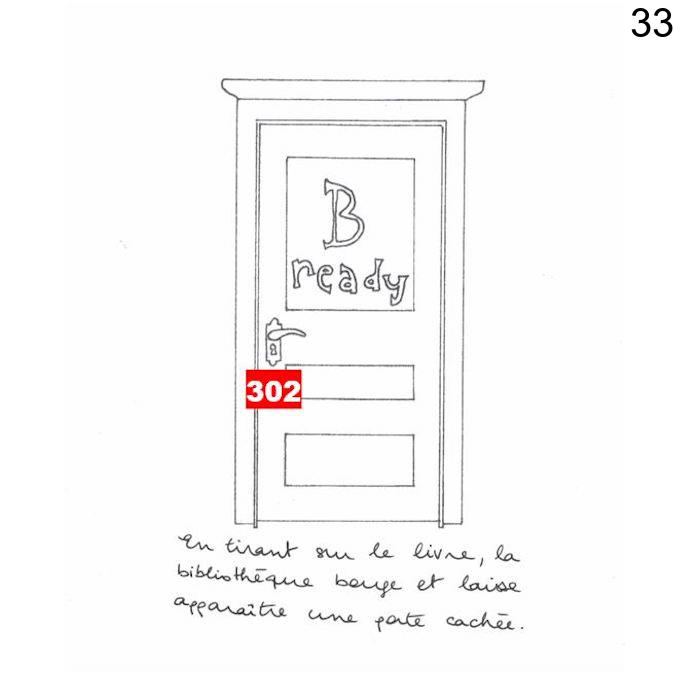 33
B
ready
302
En tirant sur le livre, la
bibliothèque bouge et laisse
apparaître une porte cachée.